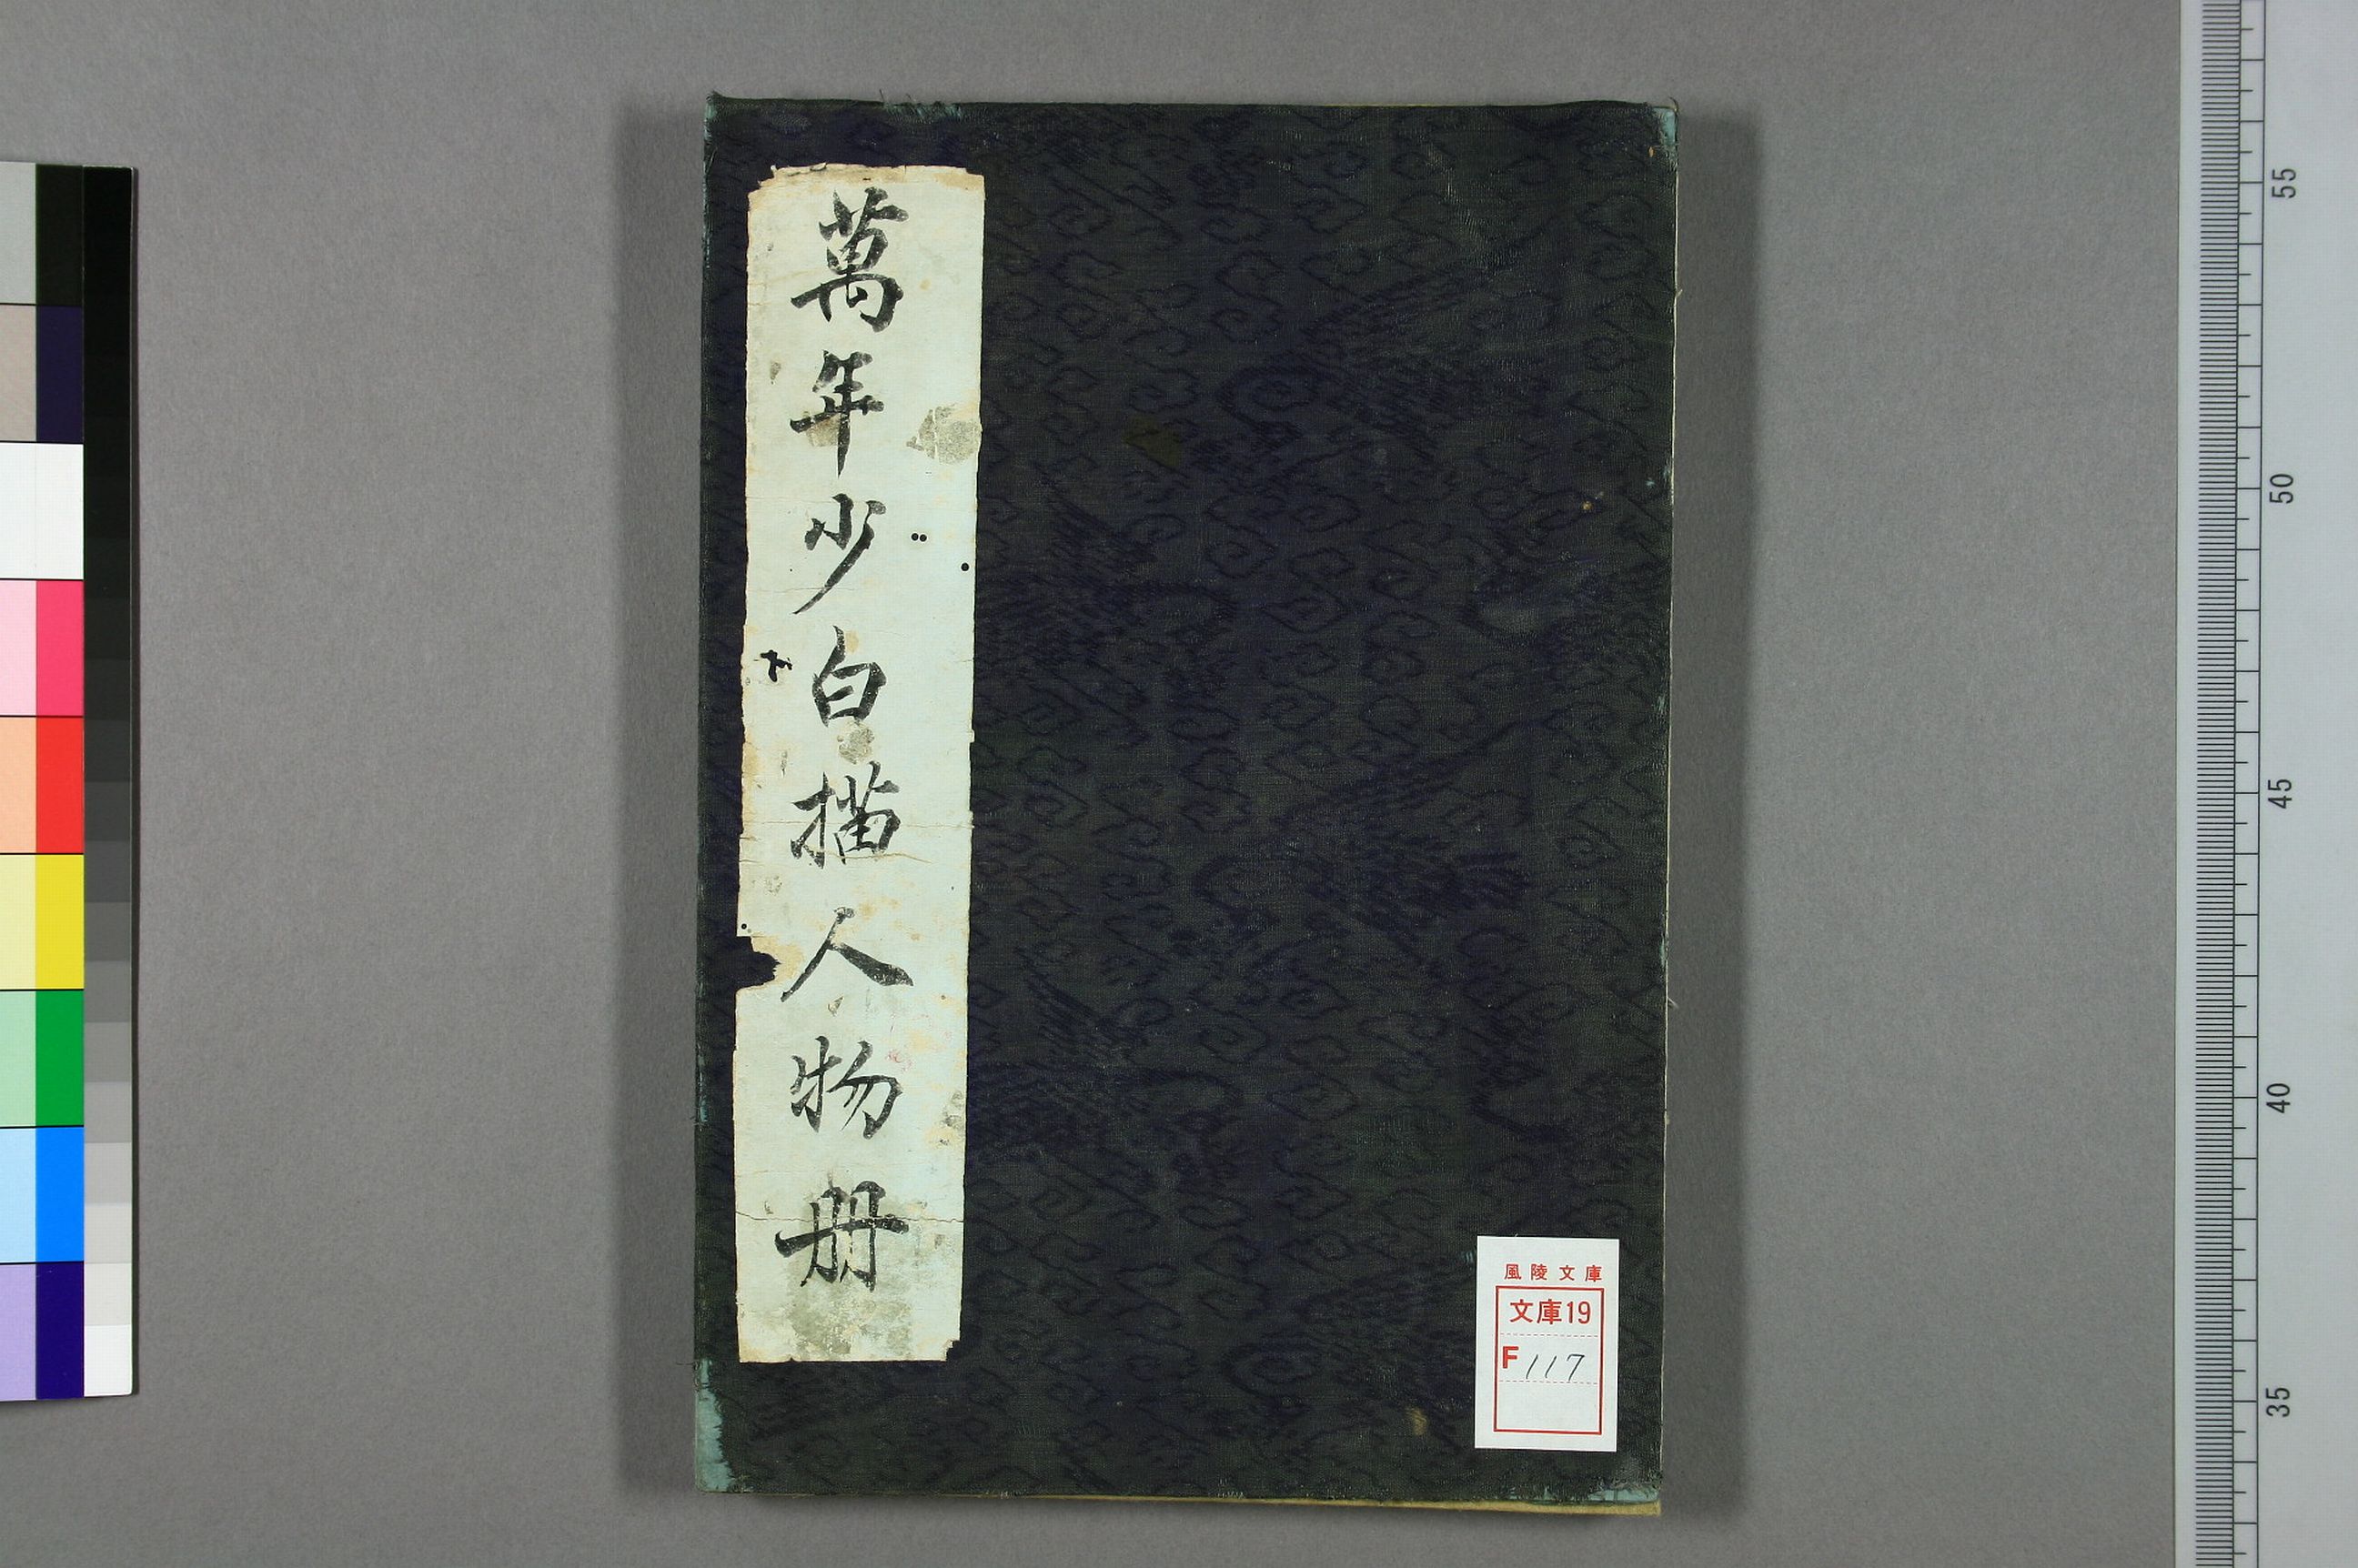 萬年少白描人物册
風陵文庫
文庫19
F117
55
50
45
40
35